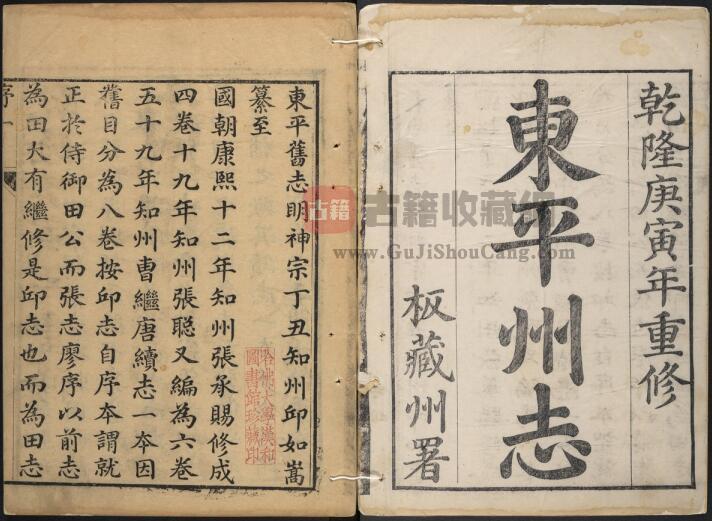 乾隆庚寅年重修
東平州志
板藏州署
東平舊志明神宗丁丑知州邱如嵩
纂至
國朝康熙十二年知州張承賜修成
四卷十九年知州張聰又編為六卷
五十九年知州曹繼唐續志一本因
舊目分為八卷按邱志自序本謂就
正於侍御田公而張志廖序以前志
為田大有繼修是邱志也而為田志
序一
哈佛大學漢和
圖書館珍藏印
古籍 古籍收藏网
www.GuJiShouCang.com